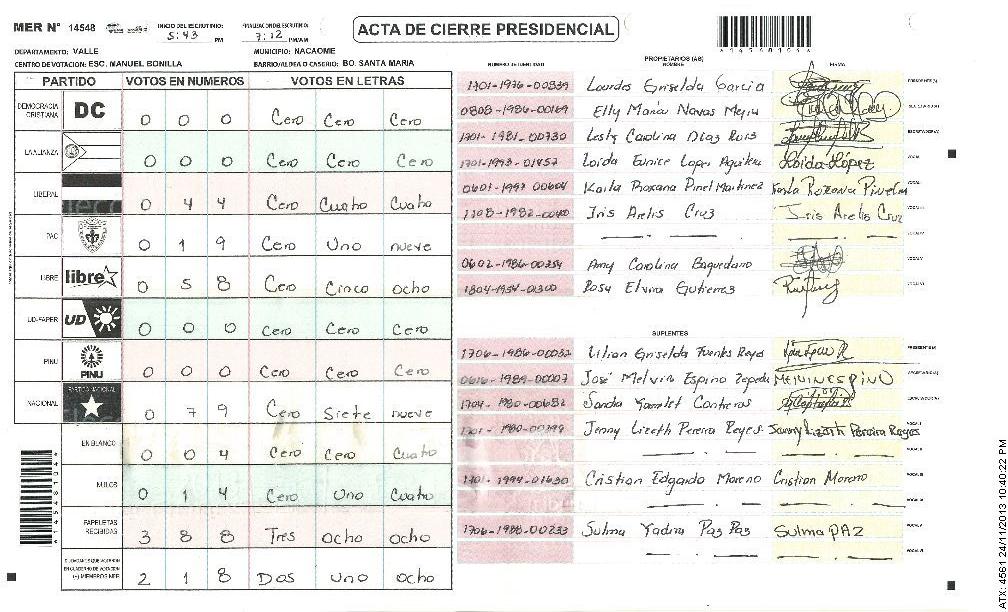 MER N° 14548 INICIO DEL ESCRUTINIO: 5:43 PM FINALIZACION DEL ESCRUTINIO: 7:12 PM/AM
ACTA DE CIERRE PRESIDENCIAL
DEPARTAMENTO: VALLE MUNICIPIO: NACAOME
CENTRO DE VOTACION: ESC. MANUEL BONILLA BARRIO/ALDEA O CASERIO: BO. SANTA MARIA
PARTIDO VOTOS EN NUMEROS VOTOS EN LETRAS
DEMOCRACIA CRISTIANA DC 0 0 0 Cero Cero Cero
LA ALIANZA 0 0 0 Cero Cero Cero
LIBERAL 0 4 4 Cero Cuatro Cuatro
PAC 0 1 9 Cero Uno nueve
LIBRE libre 0 5 8 Cero Cinco ocho
UD-FAPER UD 0 0 0 Cero Cero Cero
PINU PINU 0 0 0 Cero Cero Cero
NACIONAL PARTIDO NACIONAL 0 7 9 Cero Siete nueve
EN BLANCO 0 0 4 Cero Cero Cuatro
NULOS 0 1 4 Cero Uno Cuatro
PAPELETAS RECIBIDAS 3 8 8 Tres ocho ocho
2 1 8 Dos uno ocho
PROPIETARIOS (AS)
NUMERO IDENTIDAD NOMBRE FIRMA
1701-1976-00839 Lourdes Griselda Garcia
0808-1986-00169 Elly Maria Navas Mejia
1701-1981-00730 Lesly Carolina Diaz Rois
1701-1993-01457 Loida Eunice Lopez Aguilera Loida López
0601-1997-00604 Karla Roxana Pinel Martinez Karla Roxana Pinel M
1708-1982-00400 Iris Arelis Cruz Iris Arelis Cruz
0602-1986-00354 Amy Carolina Baquedano
1804-1954-01300 Rosa Elvira Gutierrez
SUPLENTES
1706-1986-00032 Lilian Griselda Fuentes Reyes
0616-1989-00007 José Melvin Espino Zepeda MELVIN ESPINO
1704-1980-00682 Sandra Yamilet Contreras
1701-1980-00799 Jenny Lizeth Pereira Reyes Jenny Lizeth Pereira Reyes
1701-1994-01630 Cristian Edgardo Moreno Cristian Moreno
1706-1988-00233 Sulma Yadira Paz Paz Sulma PAZ
ATX: 4561 24/11/2013 10:40:22 PM